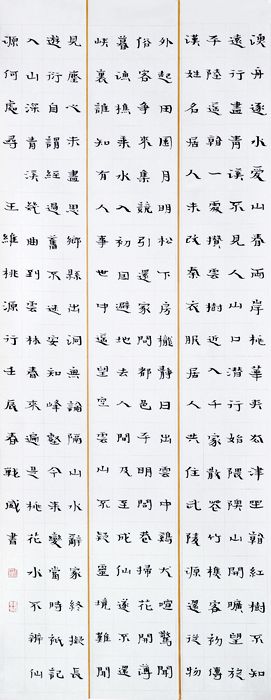 漁舟逐水愛山春兩岸桃華夾古津坐看紅樹不知
遠行盡青溪不見人山口潛行始隈隩山開曠望旋
平陸遙看一處攢雲樹近入千家散花竹樵客初傳
漢姓名居人未改秦衣服居人共住武陵源還從物
外起田園月明松下房櫳靜日出雲中鷄犬喧驚聞
俗客爭來集競引還家問都邑平明閭巷掃花開薄
暮漁樵乘水入初因避地去人間及至成仙遂不還
峽裏誰知有人事世中遙望空雲山不疑靈境難聞
見塵心未盡思鄉縣出洞無論隔山水辭家終擬長
遊衍自謂經過舊不迷安知峰壑今來變當時祇記
入山深青溪幾曲到雲林春來遍是桃花水不辨仙
源何處尋 王維桃源行壬辰春戰威書